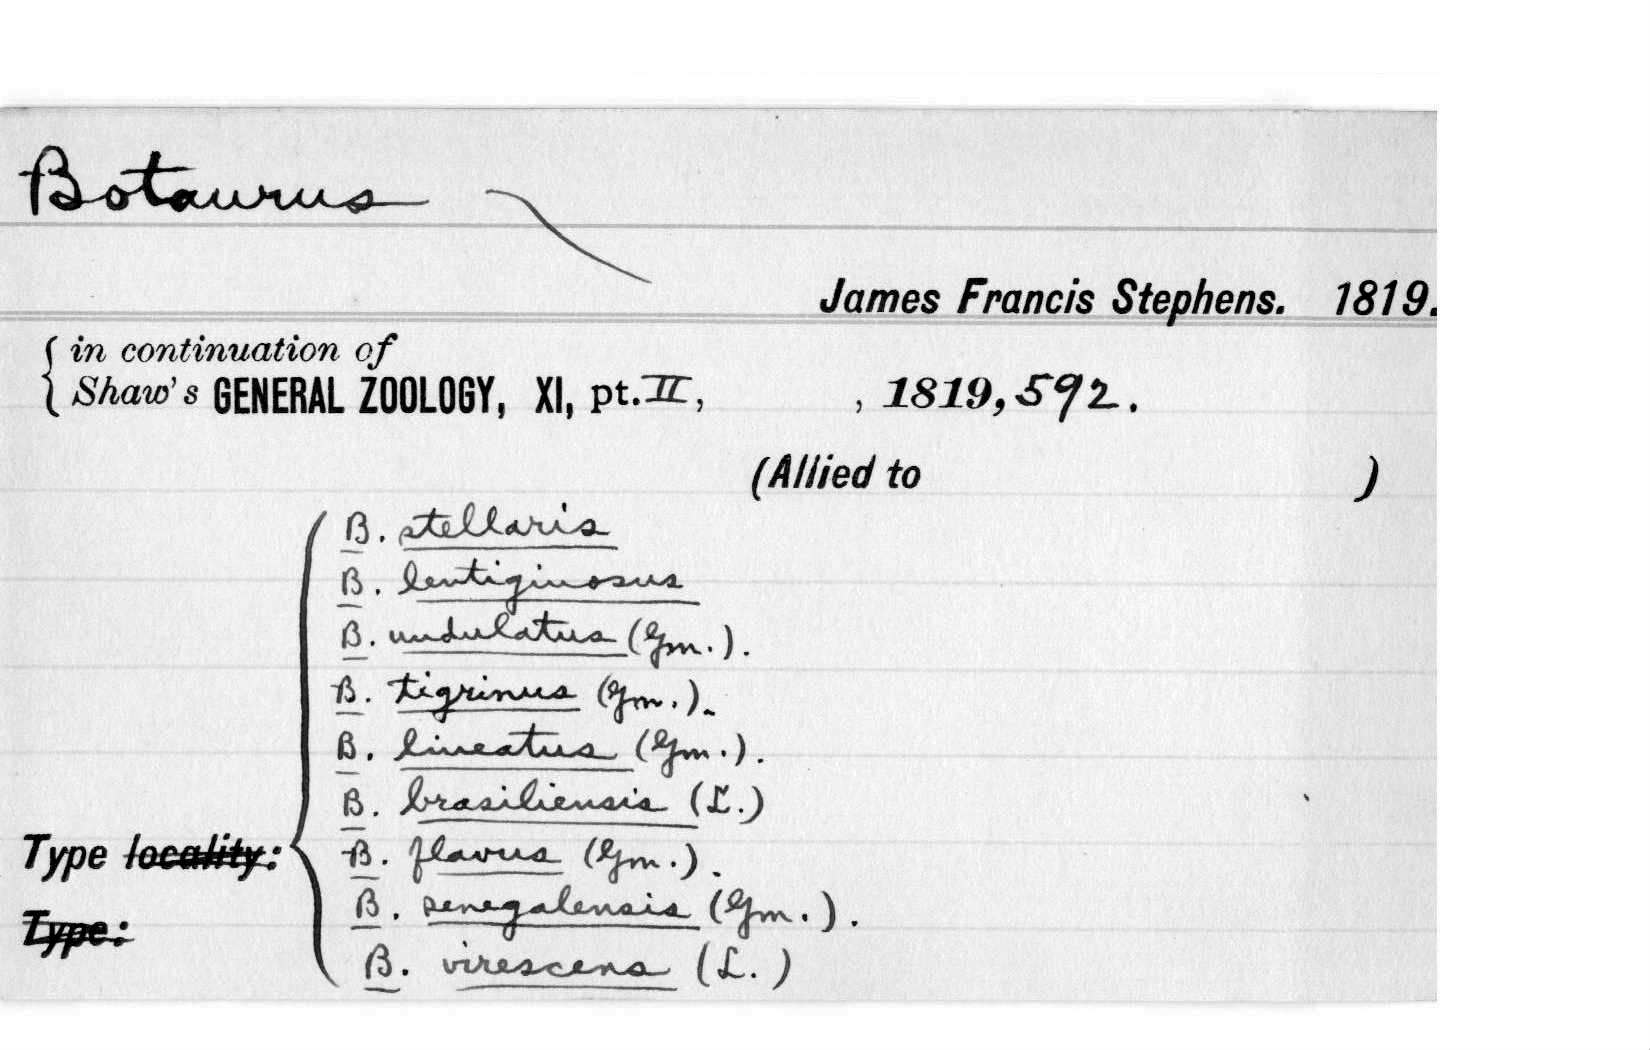 Botaurus
James Francis Stephens. 1819.
in continuation of
Shaw's GENERAL ZOOLOGY, XI, pt. II, , 1819, 592.
(Allied to )
B. stellaris
B. lentiginosus
B. undulatus (Gm.).
B. tigrinus (Gm.).
B. lineatus (Gm.).
B. brasiliensis (L.)
Type locality:
B. flavus (Gm.).
B. senegalensis (Gm.).
Type:
B. virescens (L.)